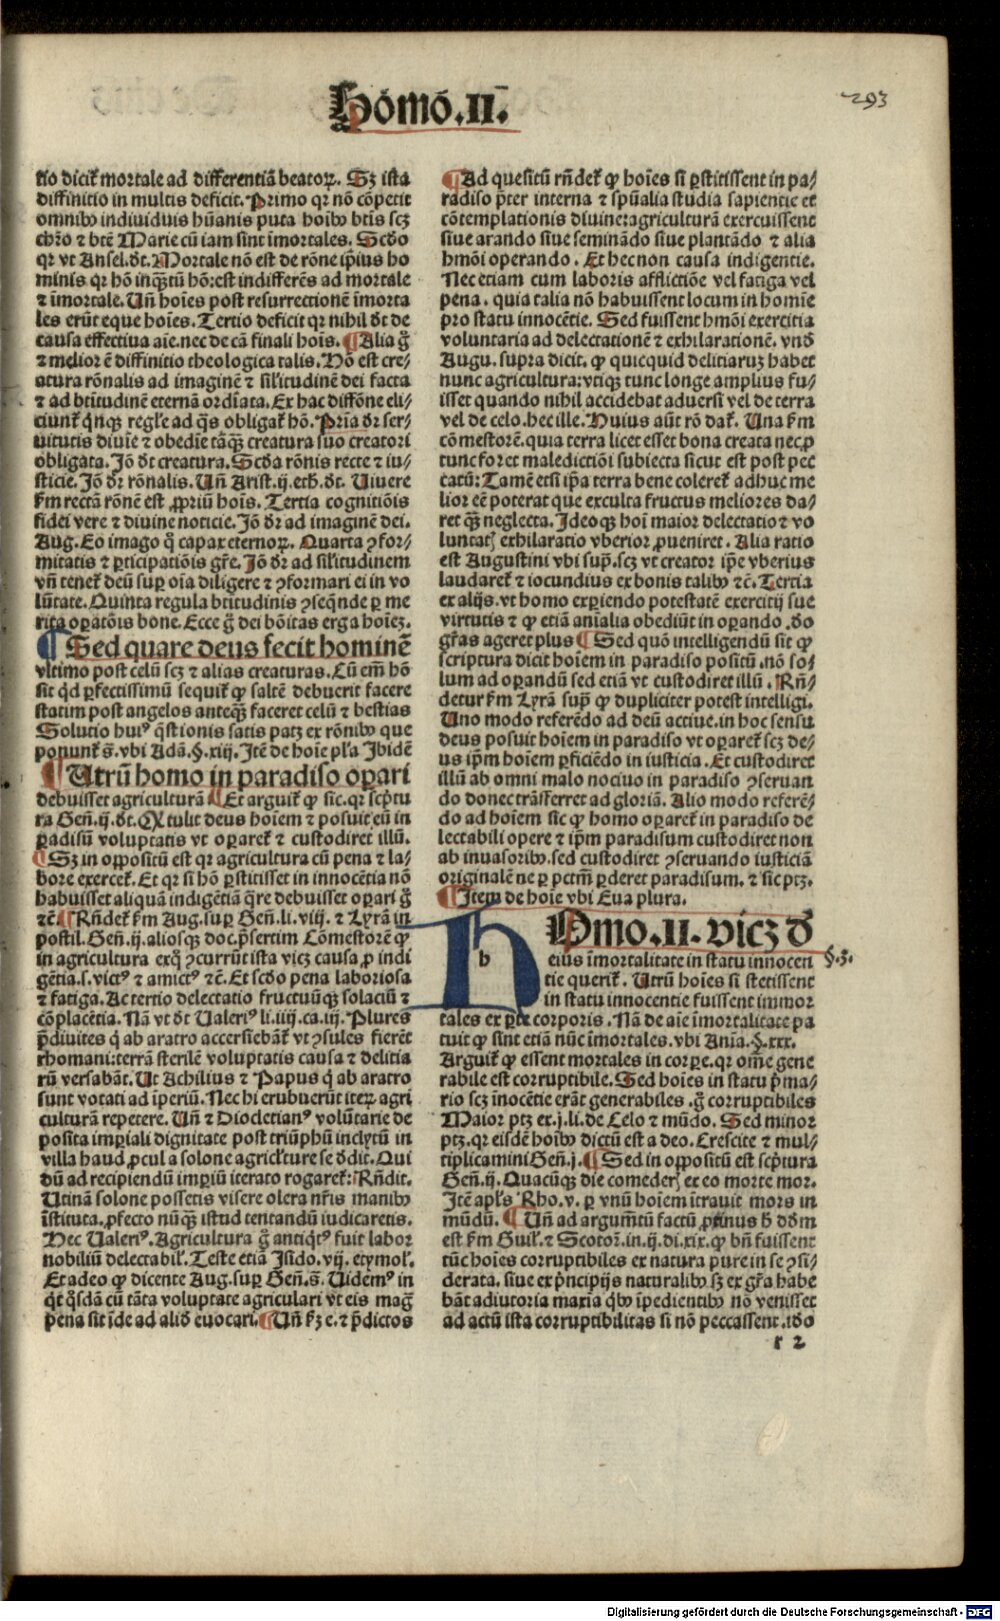 Hōmō.II.
293
tio dicit᷑ mortale ad differentiā beatoꝝ. Sꝫ ista
diffinitio in multis deficit. Primo qꝛ nō cōpetit
omnibꝰ indiuiduis hūanis puta hoībꝰ btīs scꝫ
chr̄o ⁊ btē Marie cū iam sint īmortales. Scd̄o
qꝛ vt Ansel. dt. Mortale nō est de rōne ip̄ius ho
minis qꝛ hō inqꝫtū hō: est indifferēs ad mortale
⁊ īmortale. Un̄ hoīes post resurrectionē īmorta
les erūt eque hoīes. Tertio deficit qꝛ nihil dt de
causa effectiua aīe. nec de cā finali hoīs. ¶ Alia gͦ
⁊ melior ē diffinitio theologica talis. Hō est cre⸗
atura rōnalis ad imaginē ⁊ sil'itudinē dei facta
⁊ ad btītudinē eternā ordīata. Ex hac diffōne eli⸗
ciunt᷑ qͥnqꝫ regl'e ad qͣs obligat᷑ hō. Prīa dꝛ ser⸗
uitutis diuīe ⁊ obedīe tāqꝫ creatura suo creatori
obligata. Jō dt creatura. Scd̄a rōnis recte ⁊ iu⸗
sticie. Jō dꝛ rōnalis. Un̄ Arist. ij. eth. dt. Uiuere
ẜm rectā rōnē est ꝓpriū hoīs. Tertia cognitiōis
fidei vere ⁊ diuine noticie. Jō dꝛ ad imaginē dei.
Aug. Eo imago qͥ capax eternoꝝ. Quarta ꝯfor⸗
mitatis ⁊ ꝑticipatiōis gr̄e. Jō dꝛ ad sil'itudinem
vn̄ tenet᷑ deū suꝑ oīa diligere ⁊ ꝯformari ei in vo
lūtate. Quinta regula btītudinis ꝯseqͣnde ꝑ me
rita oꝑatōis bone. Ecce gͦ dei bōitas erga hoīeꝫ.
¶ Sed quare deus fecit hominē
vltimo post celū scꝫ ⁊ alias creaturas. Cū em̄ hō
sit qͥd ꝑfectissimū sequit᷑ ꝙ saltē debuerit facere
statim post angelos anteqꝫ faceret celū ⁊ bestias
Solutio huiꝰ qͣstionis satis patꝫ ex rōnibꝰ que
ponunt᷑ s̄. vbi Adā. §. xiij. Jtē de hoīe pl'a Jbidē
¶ Utrū homo in paradiso oꝑari
debuisset agriculturā ¶ Et arguit᷑ ꝙ sic. qꝛ scp̄tu
ra Gen̄. ij. dt. Q Tulit deus hoīem ⁊ posuit eū in
ꝑadisū voluptatis vt oꝑaret᷑ ⁊ custodiret illū.
¶ Sꝫ in oppositū est qꝛ agricultura cū pena ⁊ la⸗
bore exercet᷑. Et qꝛ si hō ꝑstitisset in innocētia nō
habuisset aliquā indigētiā qͣre debuisset oꝑari gͦ
⁊cē. ¶ Rn̄det᷑ ẜm Aug. suꝑ Gen̄. li. viij. ⁊ Lyrā in
postil. Gen̄. ij. aliosqꝫ doc. p̄sertim Cōmestorē ꝙ
in agricultura exqͣ ꝯcurrūt ista vicꝫ causa ꝓ indi
gētia. s. victꝰ ⁊ amictꝰ ⁊cē. Et scd̄o pena laboriosa
⁊ fatiga. Ac tertio delectatio fructuūqꝫ solaciū ⁊
cōplacētia. Nā vt dt Ualeriꝰ li. iiij. ca. iij. Plures
p̄diuites qͥ ab aratro accersiebāt᷑ vt ꝯsules fierēt
rhomani: terrā sterilē voluptatis causa ⁊ delitia
rū versabāt. Ut Achilius ⁊ Papus qͥ ab aratro
sunt votati ad īperiū. Nec hi erubuerūt iteꝝ agri
culturā repetere. Un̄ ⁊ Diocletianꝰ volūtarie de
posita imꝑiali dignitate post triūphū inclytū in
villa haud ꝓcul a solone agricl'ture se dīdit. Qui
dū ad recipiendū imꝑiū iterato rogaret᷑: Rn̄dit.
Utinā solone possetis visere olera nr̄is manibꝰ
īstituta. ꝓfecto nūqꝫ istud tentandū iudicaretis.
Hec Ualeriꝰ. Agricultura gͦ antiqͥtꝰ fuit labor
nobiliū delectabil'. Teste etiā Jsido. vij. etymol'.
Et adeo ꝙ dicente Aug. suꝑ Gen̄. s̄. Uidemꝰ in
qͥt qͦsdā cū tāta voluptate agriculari vt eis magͣ
pena sit īde ad aliud euocari. ¶ Un̄ ẜꝫ e. ⁊ p̄dictos
¶ Ad quesitū rn̄det᷑ ꝙ hoīes si ꝑstitissent in pa⸗
radiso p̄ter interna ⁊ sp̄ualia studia sapientie et
cōtemplationis diuine: agriculturā exercuissent
siue arando siue seminādo siue plantādo ⁊ alia
hmōi operando. Et hec non causa indigentie.
Nec etiam cum laboris afflictiōe vel fatiga vel
pena. quia talia nō habuissent locum in homīe
pro statu innocētie. Sed fuissent hmōi exercitia
voluntaria ad delectationē ⁊ exhilarationē. vnd̄
Augu. supra dicit. ꝙ quicquid delitiaruꝫ habet
nunc agricultura: vtiqꝫ tunc longe amplius fu⸗
isset quando nihil accidebat aduersi vel de terra
vel de celo. hec ille. Huius aūt rō dat᷑. Una ẜm
cōmestorē. quia terra licet esset bona creata nec ꝓ
tunc foret maledictiōi subiecta sicut est post pec
catū: Tamē etsi ip̄a terra bene coleret᷑ adhuc me
lior eē poterat que exculta fructus meliores da⸗
ret qꝫ neglecta. Jdeoqꝫ hoī maior delectatio ⁊ vo
luntatꝭ exhilaratio vberior ꝓueniret. Alia ratio
est Augustini vbi sup̄. scꝫ vt creator ip̄e vberius
laudaret᷑ ⁊ iocundius ex bonis talibꝰ ⁊cē. Tertia
ex alijs. vt homo exꝑiendo potestatē exercitij sue
virtutis ⁊ ꝙ etiā anīalia obediūt in oꝑando. do
gr̄as ageret plus ¶ Sed quō intelligendū sit ꝙ
scriptura dicit hoīem in paradiso positū. nō so⸗
lum ad oꝑandū sed etiā vt custodiret illū. Rn̄⸗
detur ẜm Lyrā sup̄ ꝙ dupliciter potest intelligi.
Uno modo referēdo ad deū actiue. in hoc sensu
deus posuit hoīem in paradiso vt oꝑaret᷑ scꝫ de⸗
us ip̄m hoīem ꝑficiēdo in iusticia. Et custodiret
illū ab omni malo nociuo in paradiso ꝯseruan
do donec trāsferret ad gloriā. Alio modo referē⸗
do ad hoīem sic ꝙ homo oꝑaret᷑ in paradiso de
lectabili opere ⁊ ip̄m paradisum custodiret non
ab inuasoribꝰ. sed custodiret ꝯseruando iusticiā
originalē ne ꝑ pctm̄ ꝑderet paradisum. ⁊ sic ptꝫ.
¶ Jtem de hoīe vbi Eua plura.
HOmo. II. vicꝫ d̄
eius īmortalitate in statu innocen §.3.
tie querit᷑. Utrū hoīes si stetissent
in statu innocentie fuissent immor
tales ex ꝑte corporis. Nā de aīe īmortalitate pa
tuit ꝙ sint etiā nūc īmortales. vbi Anīa. §. xxx.
Arguit᷑ ꝙ essent mortales in corꝑe. qꝛ om̄e gene
rabile est corruptibile. Sed hoīes in statu p̄ma⸗
rio scꝫ īnocētie erāt generabiles. gͦ corruptibiles
Maior ptꝫ ex. j. li. de Celo ⁊ mūdo. Sed minor
ptꝫ. qꝛ eisdē hoībꝰ dictū est a deo. Crescite ⁊ mul⸗
tiplicamini Gen̄. j. ¶ Sed in oppositū est scp̄tura
Gen̄. ij. Quacūqꝫ die comederꝭ ex eo morte mor.
Jtē apl's Rho. v. ꝑ vnū hoīem ītrauit mors in
mūdū. ¶ Un̄ ad argum̄tū factū ꝓtinus h̄ dd̄m
est ẜm Guil'. ⁊ Scotoꝝ. in. ij. di. xix. ꝙ bn̄ fuissent
tūc hoīes corruptibiles ex natura pure in se ꝯsi⸗
derata. siue ex p̄ncipijs naturalibꝰ sꝫ ex gr̄a habe
bāt adiutoria maxīa qͥbꝰ īpedientibꝰ nō venisset
ad actū ista corruptibilitas si nō peccassent. ido
r 2
Digitalisierung gefördert durch die Deutsche Forschungsgemeinschaft - DFG